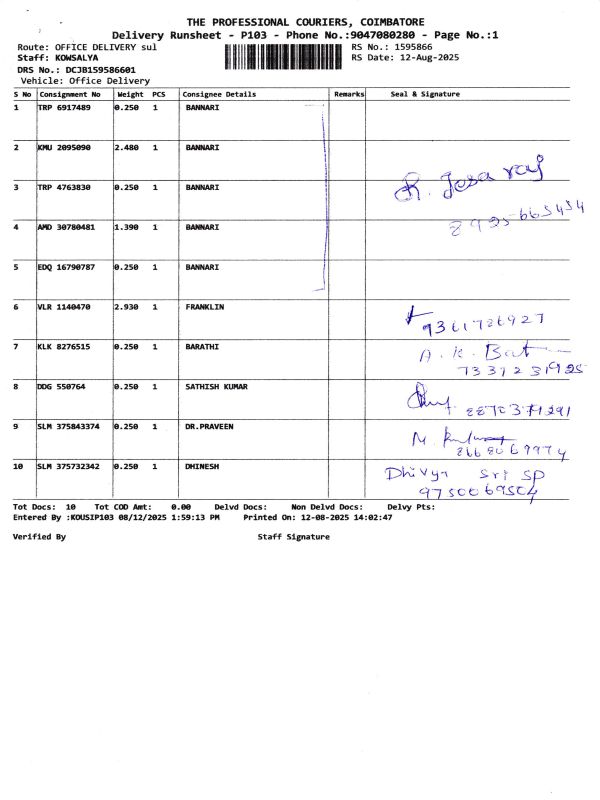 THE PROFESSIONAL COURIERS, COIMBATORE
Delivery Runsheet - P103 - Phone No.:9047080280 - Page No.:1
Route: OFFICE DELIVERY sul RS No.: 1595866
Staff: KOWSALYA RS Date: 12-Aug-2025
DRS No.: DCJB159586601
Vehicle: Office Delivery
S No Consignment No Weight PCS Consignee Details Remarks Seal & Signature
1 TRP 6917489 0.250 1 BANNARI
2 KMU 2095090 2.480 1 BANNARI
3 TRP 4763830 0.250 1 BANNARI R. Jesu raj
4 AMD 30780481 1.390 1 BANNARI 8925665454
5 EDQ 16790787 0.250 1 BANNARI
6 VLR 1140470 2.930 1 FRANKLIN 9361726927
7 KLK 8276515 0.250 1 BARATHI A. K.
7331231925
8 DDG 550764 0.250 1 SATHISH KUMAR
9 SLM 375843374 0.250 1 DR.PRAVEEN M.
10 SLM 375732342 0.250 1 DHINESH Dhivya Sri SP
9750069504
Tot Docs: 10 Tot COD Amt: 0.00 Delvd Docs: Non Delvd Docs: Delvy Pts:
Entered By :KOUSIP103 08/12/2025 1:59:13 PM Printed On: 12-08-2025 14:02:47
Verified By Staff Signature